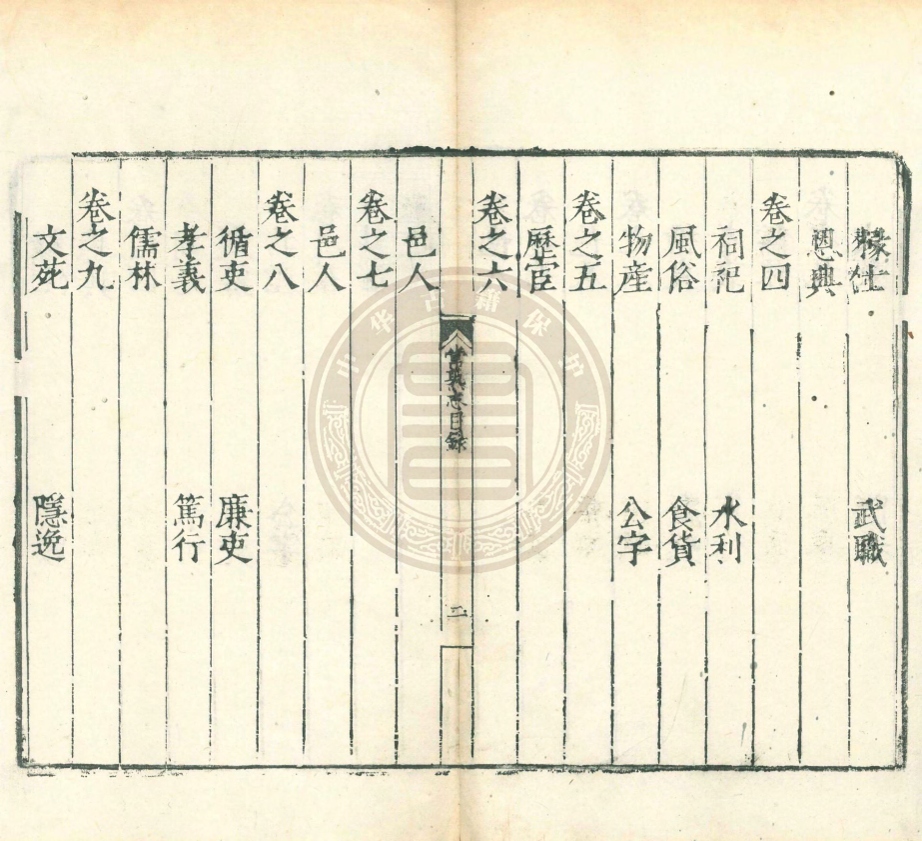 掾仕　武職
恩典
卷之四
祠祀　水利
風俗　食貨
物産　公字
卷之五
歷宦
卷之六
常熟志目錄　二
邑人
卷之七
邑人
卷之八
循吏　廉吏
孝義　篤行
儒林
卷之九
文苑　隱逸
中华古籍保护